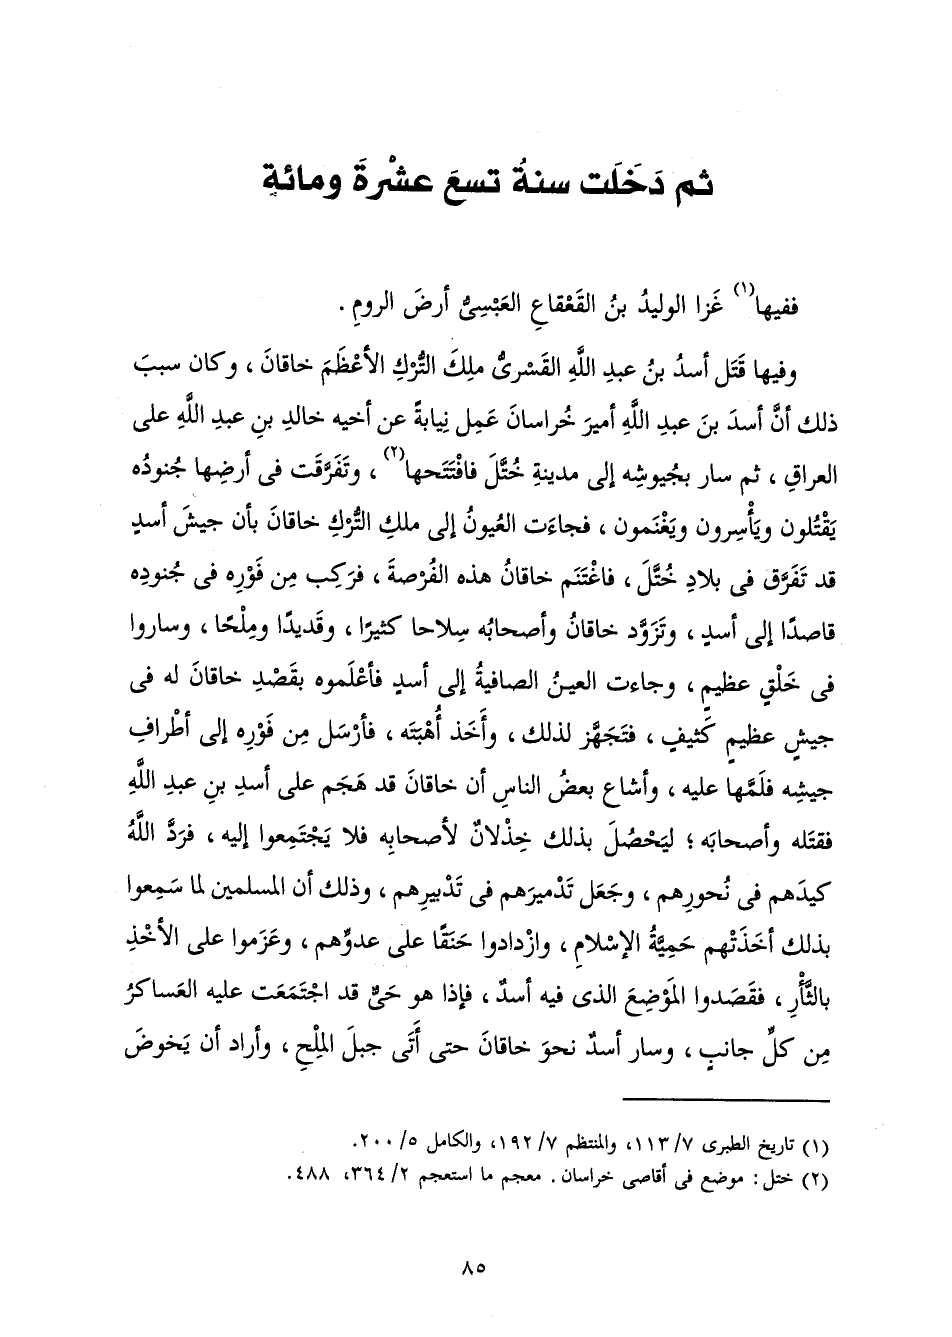 ثم دَخَلَت سنةُ تسعَ عشْرةَ ومائةٍ
ففيها(١) غَزا الوليدُ بنُ القَعْقاعِ العَبْسِىُّ أرضَ الرومِ .
وفيها قَتَل أسدُ بنُ عبدِ اللَّهِ القَسْرىُّ ملِكَ التُّرْكِ الأعْظَمَ خاقانَ ، وكان سببَ
ذلك أنَّ أسدَ بنَ عبدِ اللَّهِ أميرَ خُراسانَ عَمِل نِيابةً عن أخيه خالدِ بنِ عبدِ اللَّهِ على
العراقِ ، ثم سار بجُيوشِه إلى مدينةِ خُتَّلَ فافْتَتَحها(٢) ، وتَفَرَّقَت فى أرضِها جُنودُه
يَقْتُلون ويَأْسِرون ويَغْنَمون ، فجاءَت العُيونُ إلى ملكِ التُّرْكِ خاقانَ بأن جيشَ أسدٍ
قد تَفَرَّق فى بلادِ خُتَّلَ ، فاغْتَنَم خاقانُ هذه الفُرْصةَ ، فرَكِب مِن فَوْرِه فى جُنودِه
قاصدًا إلى أسدٍ ، وتَزَوَّد خاقانُ وأصحابُه سِلاحا كثيرًا ، وقَديدًا ومِلْحًا ، وساروا
فى خَلْقٍ عظيمٍ ، وجاءت العينُ الصافيةُ إلى أسدٍ فأعْلَموه بقَصْدِ خاقانَ له فى
جيشٍ عظيمٍ كَثيفٍ ، فتَجَهَّز لذلك ، وأَخَذ أُهْبَتَه ، فأرْسَل مِن فَوْرِه إلى أطْرافِ
جيشِه فلَمَّها عليه ، وأشاع بعضُ الناسِ أن خاقانَ قد هَجَم على أسدِ بنِ عبدِ اللَّهِ
فقتَله وأصحابَه ؛ ليَحْصُلَ بذلك خِذْلانٌ لأصحابِه فلا يَجْتَمِعوا إليه ، فرَدَّ اللَّهُ
كيدَهم فى نُحورِهم ، وجَعَل تَدْميرَهم فى تَدْبيرِهم ، وذلك أن المسلمين لما سَمِعوا
بذلك أخَذَتْهم حَمِيَّةُ الإسْلامِ ، وازْدادوا حَنَقًا على عدوِّهم ، وعَزَموا على الأخْذِ
بالثَّأْرِ ، فقَصَدوا المَوْضِعَ الذى فيه أسدٌ ، فإذا هو حَىٌّ قد اجْتَمَعَت عليه العَساكرُ
مِن كلِّ جانبٍ ، وسار أسدٌ نحوَ خاقانَ حتى أَتَى جبلَ المِلْحِ ، وأراد أن يَخوضَ
(١) تاريخ الطبرى ٧/ ١١٣، والمنتظم ٧/ ١٩٢، والكامل ٥/ ٢٠٠.
(٢) ختل : موضع فى أقاصى خراسان . معجم ما استعجم ٢/ ٣٦٤، ٤٨٨.
٨٥